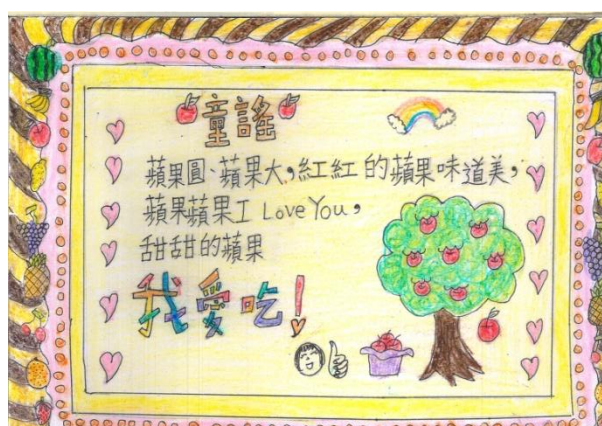 童謠
蘋果圓、蘋果大，紅紅的蘋果味道美，
蘋果蘋果I Love You，
甜甜的蘋果
我愛吃！